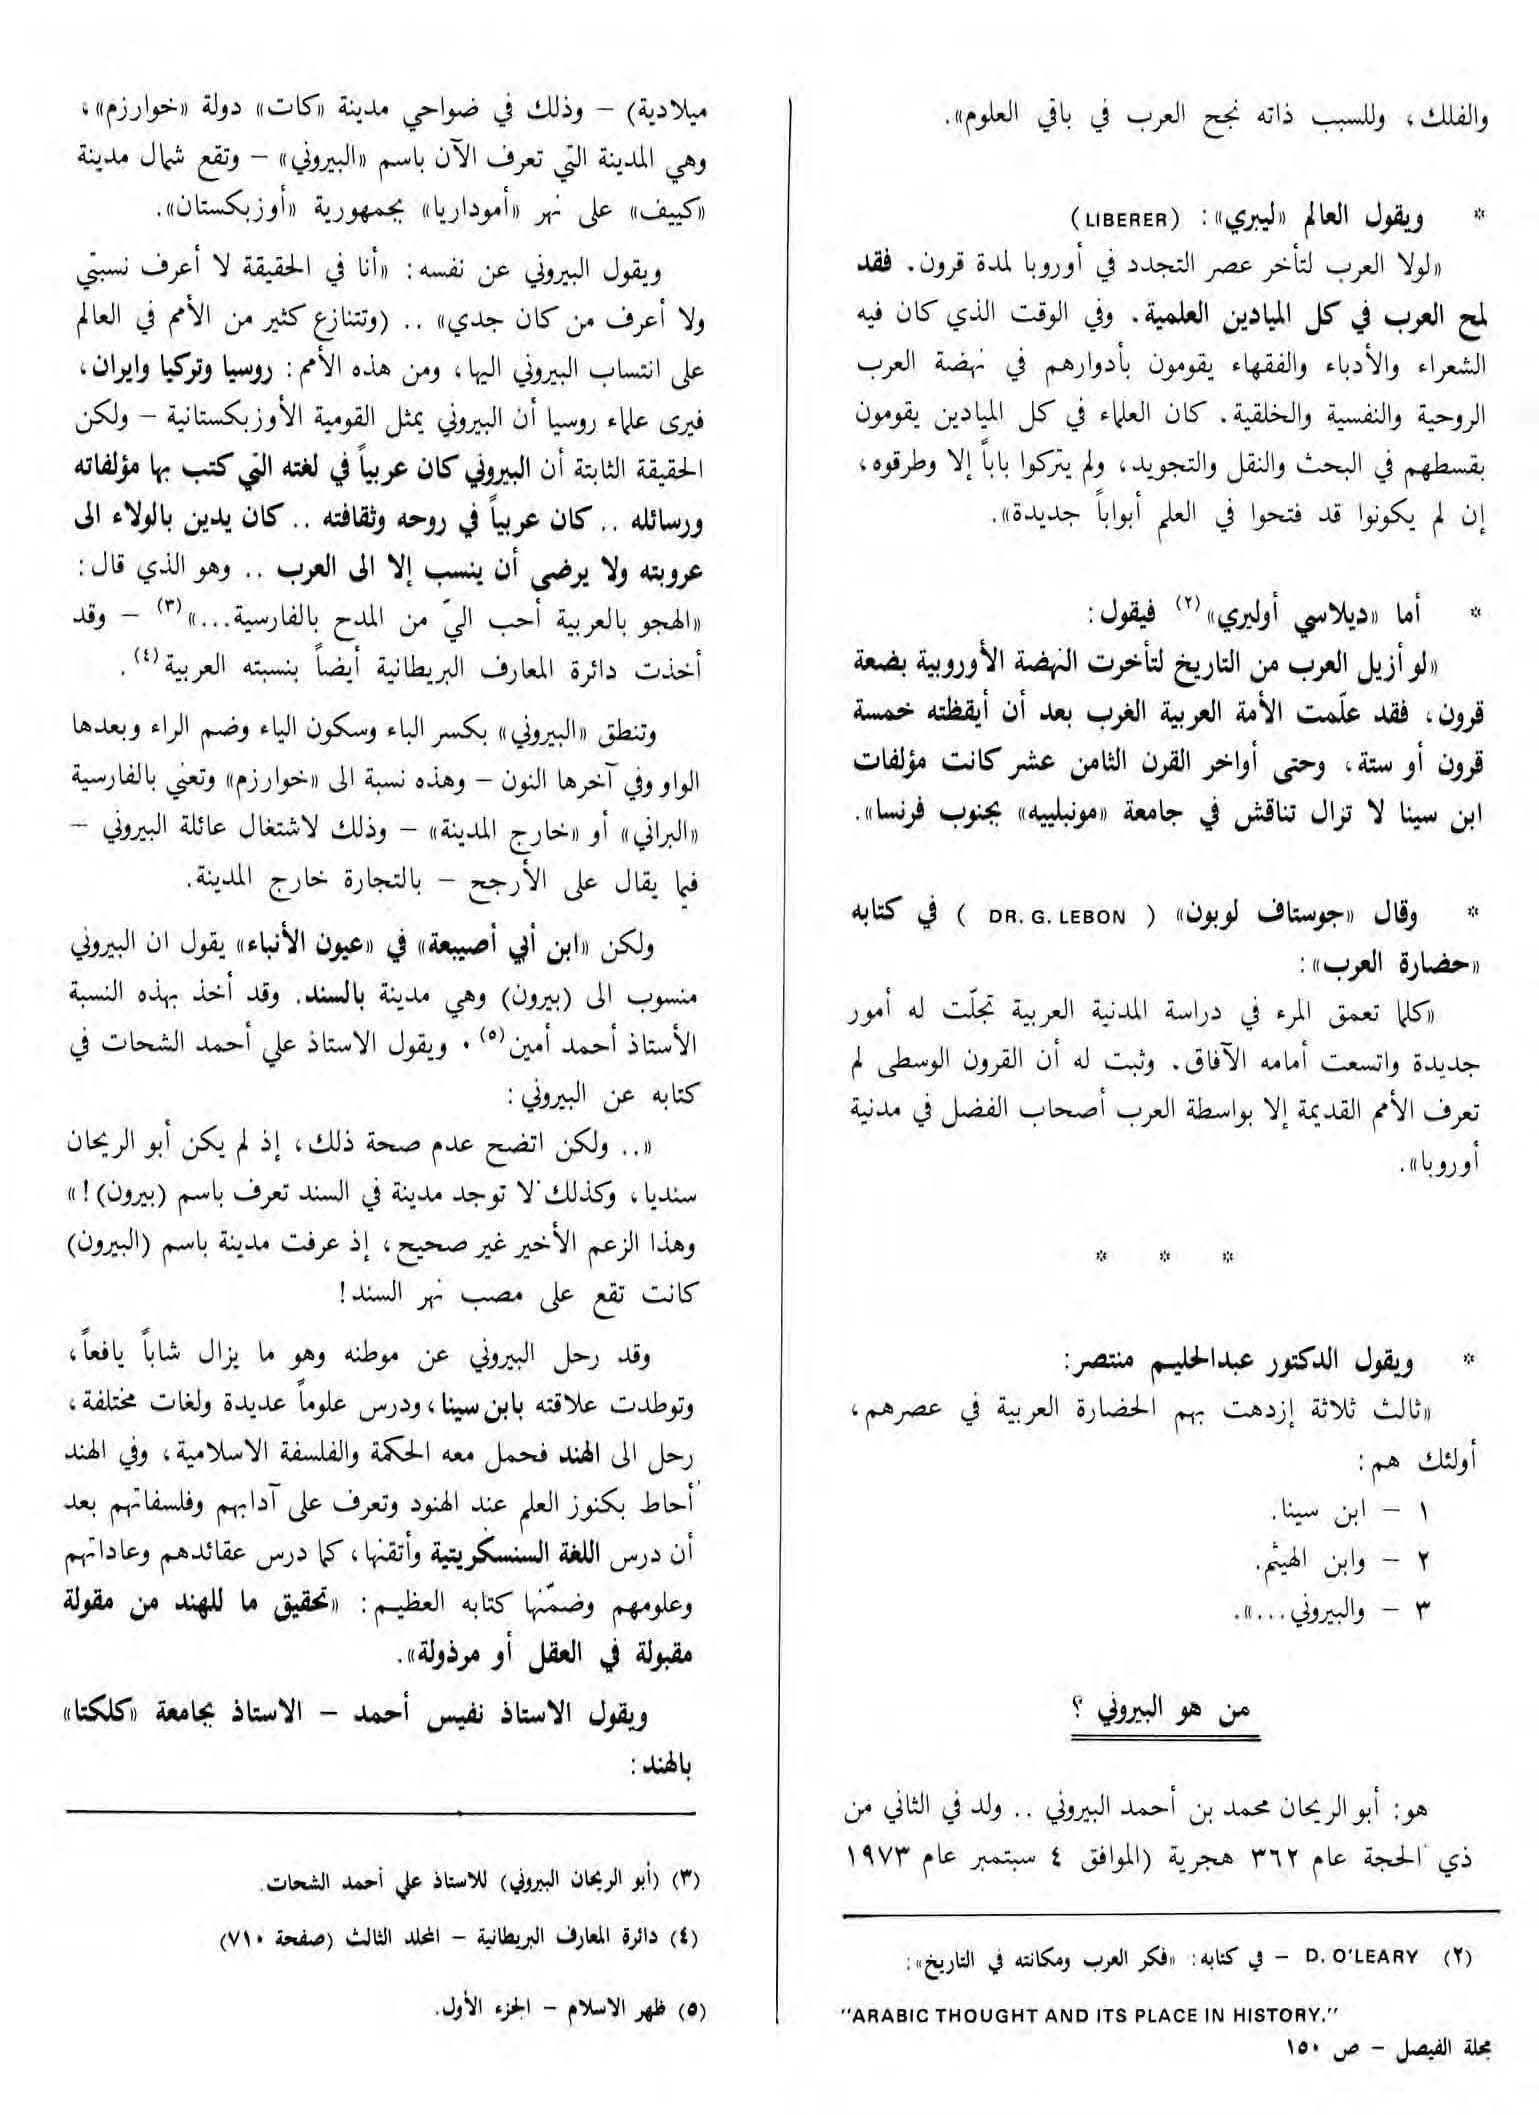 والفلك، وللسبب ذاته نجح العرب في باقي العلوم».
* ويقول العالم «ليبري»: (LIBERER)
«لولا العرب لتأخر عصر التجدد في أوروبا لمدة قرون. فقد
لمح العرب في كل الميادين العلمية. وفي الوقت الذي كان فيه
الشعراء والأدباء والفقهاء يقومون بأدوارهم في نهضة العرب
الروحية والنفسية والخلقية. كان العلماء في كل الميادين يقومون
بقسطهم في البحث والنقل والتجويد، ولم يتركوا باباً إلا وطرقوه،
إن لم يكونوا قد فتحوا في العلم أبواباً جديدة».
* أما «ديلاسي أوليري»(٢) فيقول:
«لو أزيل العرب من التاريخ لتأخرت النهضة الأوروبية بضعة
قرون، فقد علّمت الأمة العربية الغرب بعد أن أيقظته خمسة
قرون أو ستة، وحتى أواخر القرن الثامن عشر كانت مؤلفات
ابن سينا لا تزال تناقش في جامعة «مونبلييه» بجنوب فرنسا».
* وقال «جوستاف لوبون» ( DR. G. LEBON ) في كتابه
«حضارة العرب»:
«كلما تعمق المرء في دراسة المدنية العربية تجلّت له أمور
جديدة واتسعت أمامه الآفاق. وثبت له أن القرون الوسطى لم
تعرف الأمم القديمة إلا بواسطة العرب أصحاب الفضل في مدنية
أوروبا».
* * *
* ويقول الدكتور عبدالحليم منتصر:
«ثالث ثلاثة إزدهت بهم الحضارة العربية في عصرهم،
أولئك هم:
١ – ابن سينا.
٢ – وابن الهيثم.
٣ – والبيروني...».
من هو البيروني ؟
هو: أبو الريحان محمد بن أحمد البيروني .. ولد في الثاني من
ذي الحجة عام ٣٦٢ هجرية (الموافق ٤ سبتمبر عام ١٩٧٣
(٢) D. O'LEARY – في كتابه: «فكر العرب ومكانته في التاريخ»:
"ARABIC THOUGHT AND ITS PLACE IN HISTORY."
مجلة الفيصل – ص ١٥٠
ميلادية) – وذلك في ضواحي مدينة «كات» دولة «خوارزم»،
وهي المدينة التي تعرف الآن باسم «البيروني» – وتقع شمال مدينة
«كييف» على نهر «أموداريا» بجمهورية «أوزبكستان».
ويقول البيروني عن نفسه: «أنا في الحقيقة لا أعرف نسبتي
ولا أعرف من كان جدي» .. (وتتنازع كثير من الأمم في العالم
على انتساب البيروني اليها، ومن هذه الأمم: روسيا وتركيا وايران،
فيرى علماء روسيا أن البيروني يمثل القومية الأوزبكستانية – ولكن
الحقيقة الثابتة أن البيروني كان عربياً في لغته التي كتب بها مؤلفاته
ورسائله .. كان عربياً في روحه وثقافته .. كان يدين بالولاء الى
عروبته ولا يرضى أن ينسب إلا الى العرب .. وهو الذي قال:
«الهجو بالعربية أحب اليّ من المدح بالفارسية...»(٣) – وقد
أخذت دائرة المعارف البريطانية أيضاً بنسبته العربية(٤).
وتنطق «البيروني» بكسر الباء وسكون الياء وضم الراء وبعدها
الواو وفي آخرها النون – وهذه نسبة الى «خوارزم» وتعني بالفارسية
«البراني» أو «خارج المدينة» – وذلك لاشتغال عائلة البيروني –
فيما يقال على الأرجح – بالتجارة خارج المدينة.
ولكن «ابن أبي أصيبعة» في «عيون الأنباء» يقول ان البيروني
منسوب الى (بيرون) وهي مدينة بالسند. وقد أخذ بهذه النسبة
الأستاذ أحمد أمين(٥). ويقول الاستاذ علي أحمد الشحات في
كتابه عن البيروني:
«.. ولكن اتضح عدم صحة ذلك، إذ لم يكن أبو الريحان
سنديا، وكذلك لا توجد مدينة في السند تعرف باسم (بيرون)!»
وهذا الزعم الأخير غير صحيح، إذ عرفت مدينة باسم (البيرون)
كانت تقع على مصب نهر السند!
وقد رحل البيروني عن موطنه وهو ما يزال شاباً يافعاً،
وتوطدت علاقته بابن سينا، ودرس علوماً عديدة ولغات مختلفة،
رحل الى الهند فحمل معه الحكمة والفلسفة الاسلامية، وفي الهند
أحاط بكنوز العلم عند الهنود وتعرف على آدابهم وفلسفاتهم بعد
أن درس اللغة السنسكريتية وأتقنها، كما درس عقائدهم وعاداتهم
وعلومهم وضمّنها كتابه العظيم: «تحقيق ما للهند من مقولة
مقبولة في العقل أو مرذولة».
ويقول الاستاذ نفيس أحمد – الاستاذ بجامعة «كلكتا»
بالهند:
(٣) (أبو الريحان البيروني) للاستاذ علي أحمد الشحات.
(٤) دائرة المعارف البريطانية – المجلد الثالث (صفحة ٧١٠)
(٥) ظهر الاسلام – الجزء الأول.